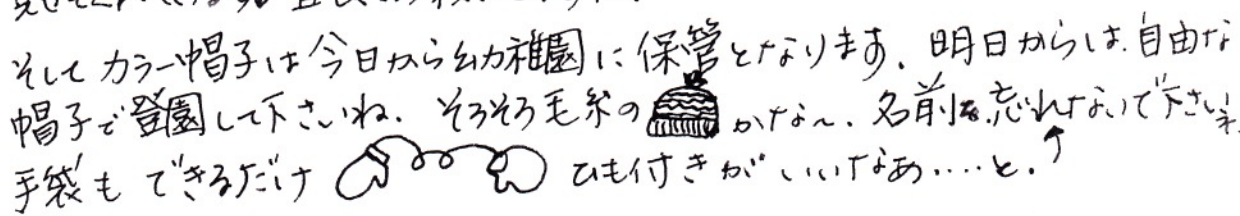 そしてカラー帽子は今日から幼稚園に保管となります. 明日からは.自由な
帽子で登園して下さいね. そろそろ毛糸の かな〜. 名前を忘れないで下さいネ.
手袋も できるだけ ひも付きが いいなあ.....と.↑